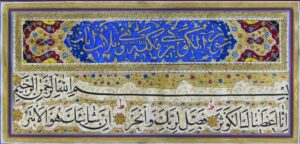 سورة الكوثر مكية ثلاث آيات
بسم الله الرحمن الرحيم
إنا أعطيناك الكوثر فصل لربك وانحر إن شانئك هو الأبتر